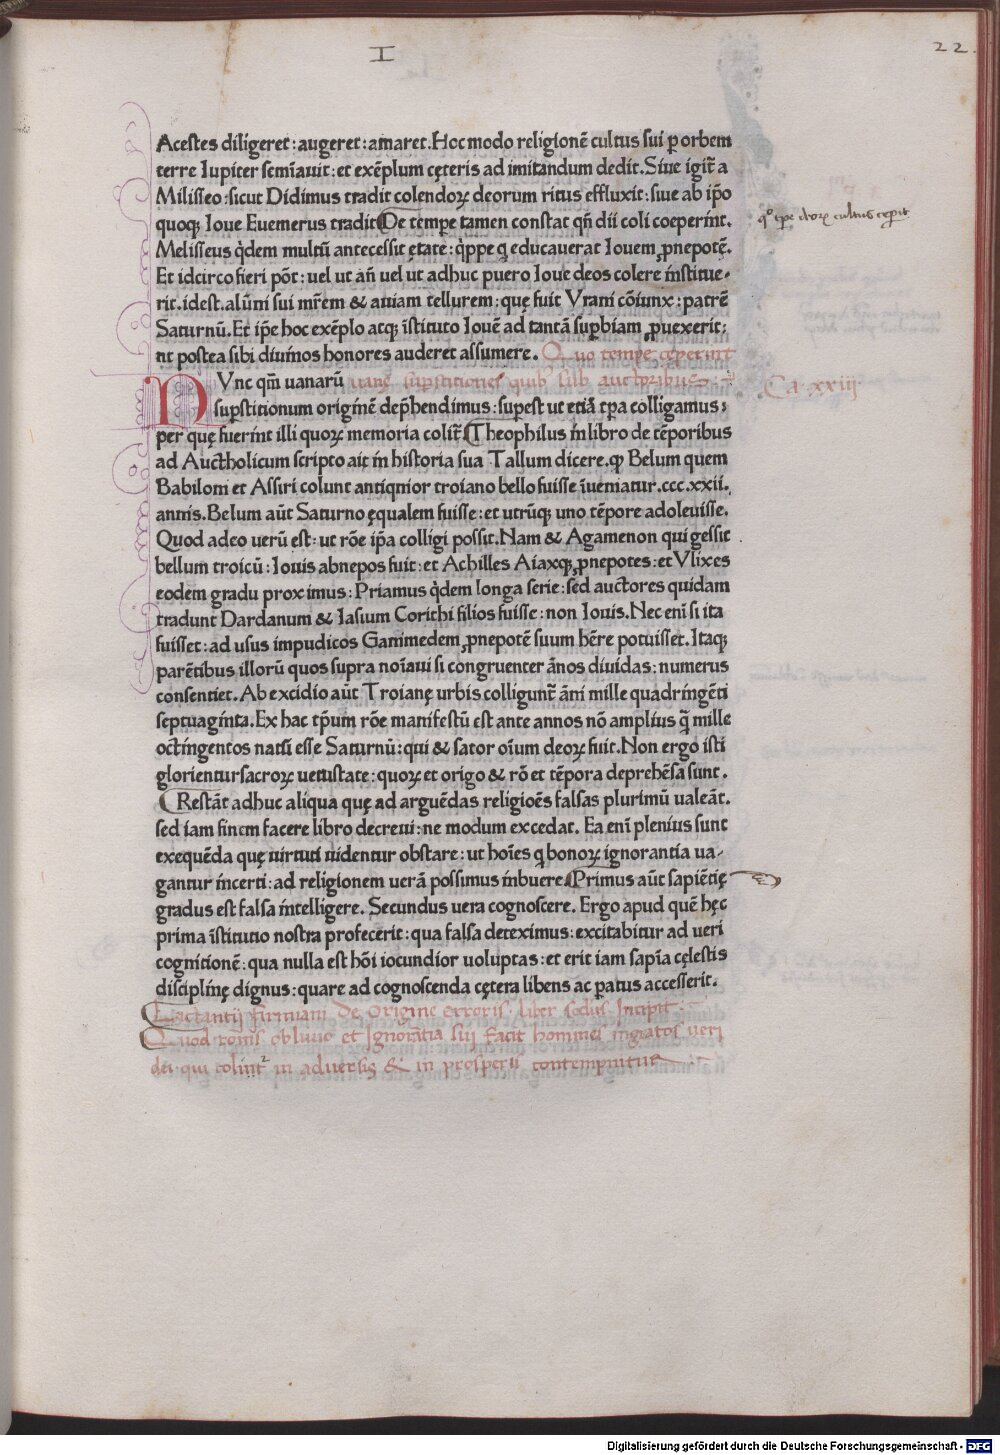 I
22.
Acestes diligeret:augeret:amaret.Hoc modo religionē cultus sui ꝑ orbem
terre Iupiter semīauit:et exēplum cęteris ad imitandum dedit.Siue igit᷑ a
Milisseo:sicut Didimus tradit colendoꝝ deorum ritus effluxit:siue ab ip̄o
quoqꝫ Ioue Euemerus tradit De tempe tamen constat qñ dii coli coeperīnt.
qº tꝑe deoꝝ cultus cepit
Melisseus q̇dem multū antecessit ętate:q̇ppe q educauerat Iouem ꝓnepotē.
Et idcirco fieri pōt:uel ut añ uel ut adhuc puero Ioue deos colere institue-
rit.idest.alūni sui mr̄em & auiam tellurem:quę fuit Vrani cōiunx:patrē
Saturnū.Et ip̄e hoc exēplo atqꝫ īstituto Iouē ad tantā suꝑbiam ꝓuexerit:
ut postea sibi diuinos honores auderet assumere. Quo tempe ceperint
NVnc qm̄ uanarū uane supstitiones quibꝰ sub auctoribus
Ca xxiii
supstitionum originē dep̄hendimus:supest ut etiā tꝑa colligamus:
per quę fuerint illi quoꝝ memoria colit᷑.Theophilus in libro de tēporibus
ad Auctholicum scripto ait in historia sua Tallum dicere.ꝙ Belum quem
Babiloni et Assiri colunt antiquior troiano bello fuisse īueniatur.ccc.xxii.
annis.Belum aūt Saturno ęqualem fuisse:et utrūqꝫ uno tēpore adoleuisse.
Quod adeo uerū est:ut rōe ip̄a colligi possit.Nam & Agamenon qui gessit
bellum troicū:Iouis abnepos fuit:et Achilles Aiaxqꝫ ꝓnepotes:et Vlixes
eodem gradu proximus:Priamus q̇dem longa serie:sed auctores quidam
tradunt Dardanum & Iasium Corithi filios fuisse:non Iouis.Nec enī si ita
fuisset:ad usus impudicos Ganimedem ꝓnepotē suum hēre potuisset.Itaqꝫ
parētibus illorū quos supra noīaui si congruenter ānos diuidas:numerus
consentiet.Ab excidio aūt Troianę urbis colligunt᷑ āni mille quadringēti
septuaginta.Ex hac tp̄um rōe manifestū est ante annos nō amplius q̄ mille
octingentos natū esse Saturnū:qui & sator oīum deoꝝ fuit.Non ergo isti
glorientur sacroꝝ uetustate:quoꝝ et origo & rō et tēpora deprehēsa sunt.
Restāt adhuc aliqua quę ad arguēdas religioēs falsas plurimū ualeāt.
sed iam finem facere libro decreui:ne modum excedat. Ea enī plenius sunt
exequēda quę uirtuti uidentur obstare:ut hoīes q bonoꝝ ignorantia ua-
gantur incerti:ad religionem uerā possimus inbuere.Primus aūt sapiētię
gradus est falsa intelligere. Secundus uera cognoscere. Ergo apud quē hęc
prima īstitutio nostra profecerit:qua falsa deteximus:excitabitur ad ueri
cognitionē:qua nulla est hōi iocundior uoluptas:et erit iam sapīa cęlestis
disciplinę dignus:quare ad cognoscenda cętera libens ac ꝑatus accesserit.
Lactantij firmiani De Origine erroris liber scdus Incipit
Quod rōnis obliuio et Ignorātia sui facit homines ingratos ueri
dei qui colint᷑ in aduersis & in prosperis contempnitur
Digitalisierung gefördert durch die Deutsche Forschungsgemeinschaft - DFG